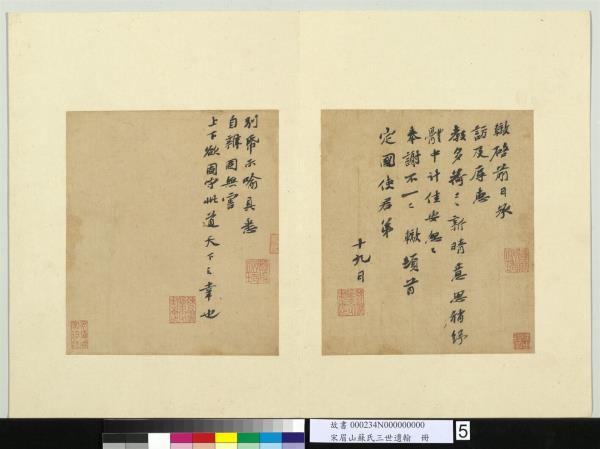 轍啟前日承
訪及屏惠
教多荷之新晴意思稍紓
體中計佳安忽之
奉謝不一一轍頓首
定國使君弟
十九日
別帋示喻具悉
自雜因無害
上下欲固守此道天下之幸也
故書 000234N000000000
宋眉山蘇氏三世遺翰 冊
5